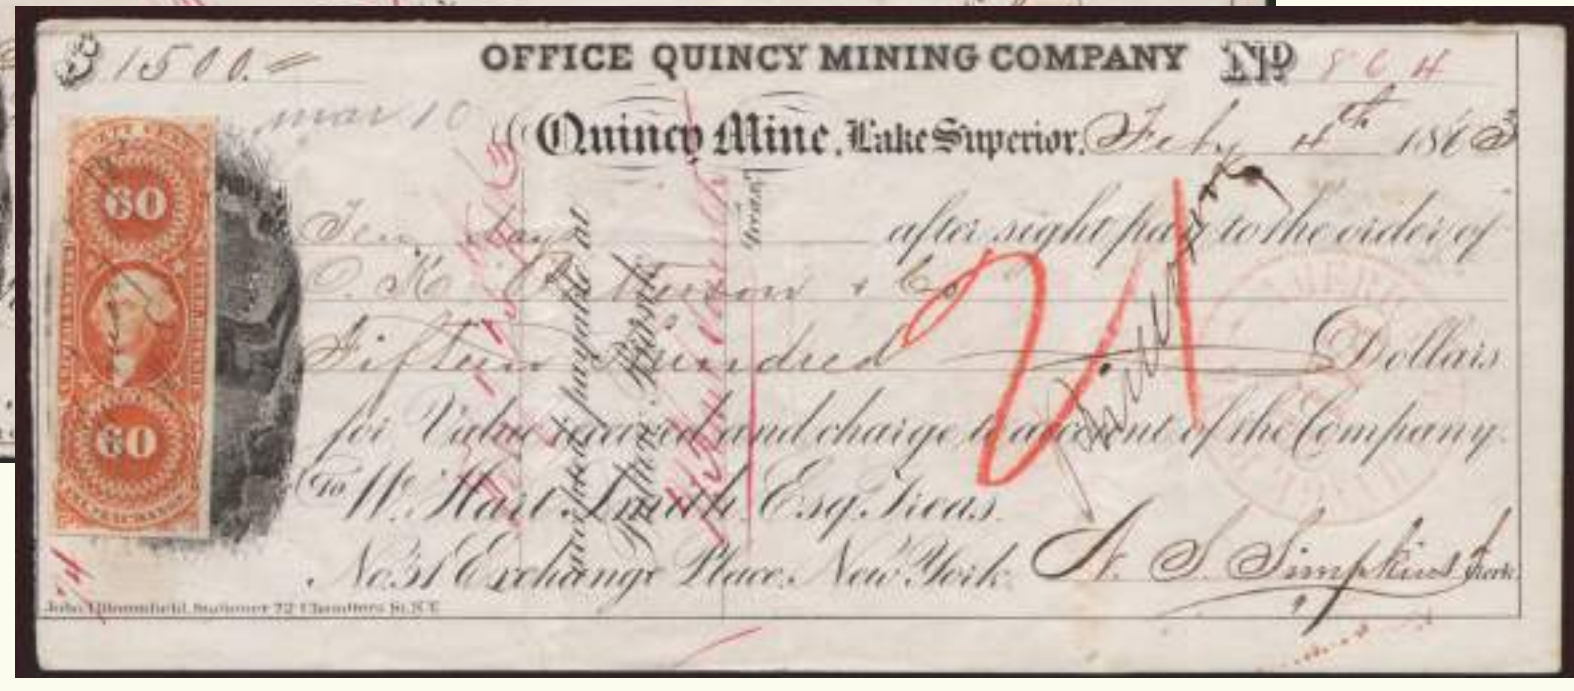 $1500.= OFFICE QUINCY MINING COMPANY No 864
mar 10
Quincy Mine, Lake Superior, Feby 4th 1863
60
60
Ten days after sight pay to the order of
& Co
Fifteen Hundred Dollars
for Value received and charge to account of the Company.
To W. Hart Smith Esq. Treas.
No. 31 Exchange Place, New York.
Simpkins
payable at
Bank
Treas.
21
Stationer 72 Chambers St. N.Y.